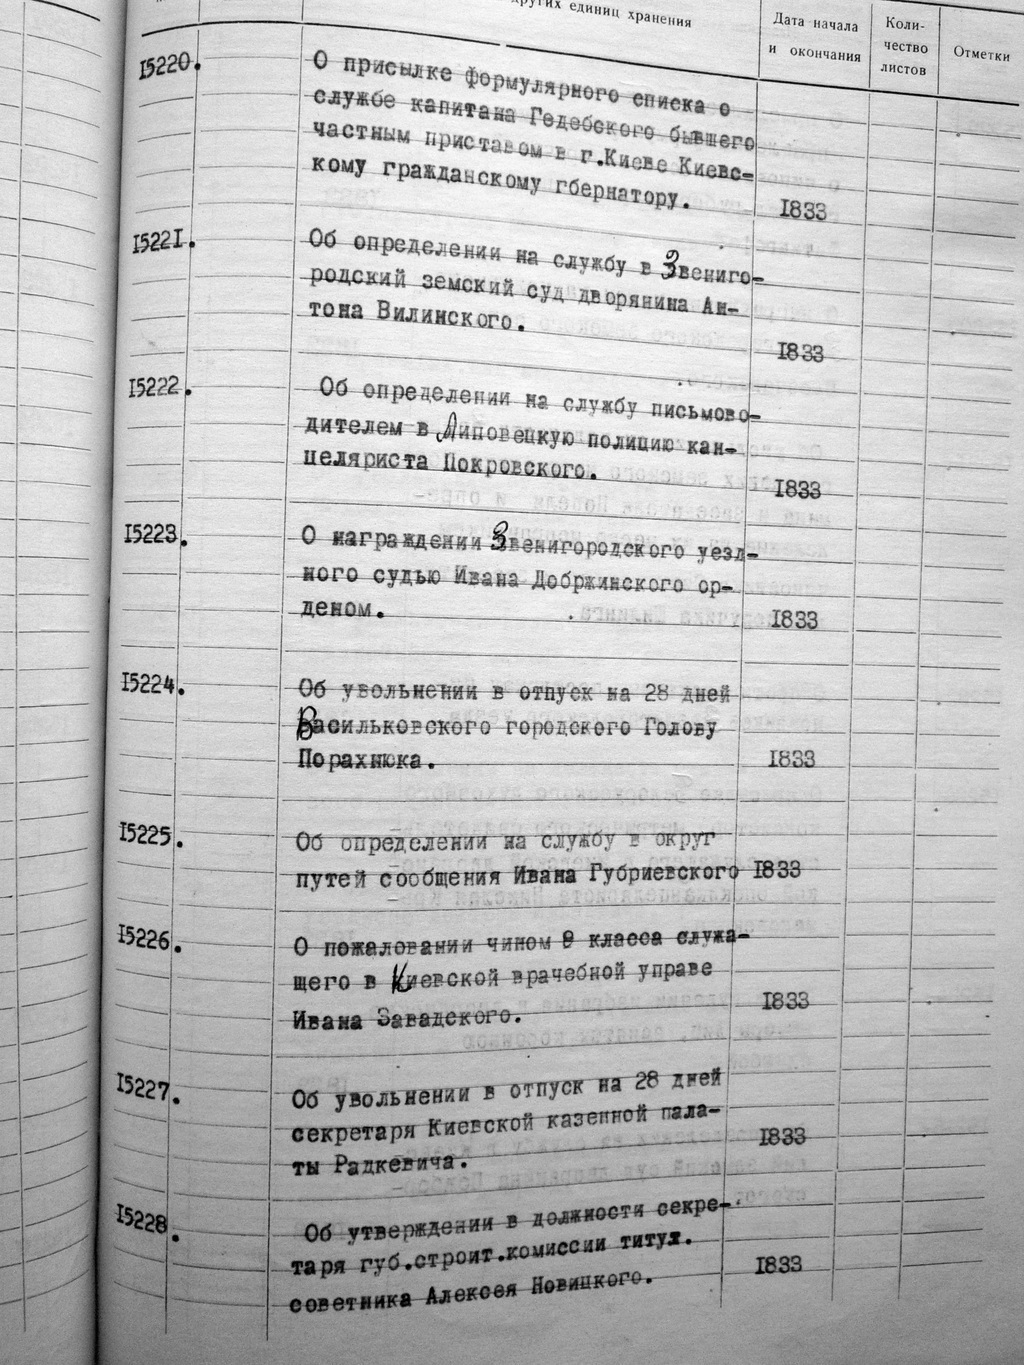 других единиц хранения
Дата начала
и окончания
Коли-
чество
листов
Отметки
15220.
О присылке формулярного списка о
службе капитана Гедебского бывшего
частным приставом в г.Киеве Киевс-
кому гражданскому гбернатору.
1833
15221.
Об определении на службу в Звениго-
родский земский суд дворянина Ан-
тона Вилинского.
1833
15222.
Об определении на службу письмово-
дителем в Липовецкую полицию кан-
целяриста Покровского.
1833
15223.
О награждении Звенигородского уезд-
ного судью Ивана Добржинского ор-
деном.
1833
15224.
Об увольнении в отпуск на 28 дней
Васильковского городского Голову
Порахнюка.
1833
15225.
Об определении на службу в округ
путей сообщения Ивана Губриевского
1833
15226.
О пожаловании чином 9 класса служа-
щего в Киевской врачебной управе
Ивана Завадского.
1833
15227.
Об увольнении в отпуск на 28 дней
секретаря Киевской казенной пала-
ты Радкевича.
1833
15228.
Об утверждении в должности секре-
таря губ.строит.комиссии титул.
советника Алексея Новицкого.
1833